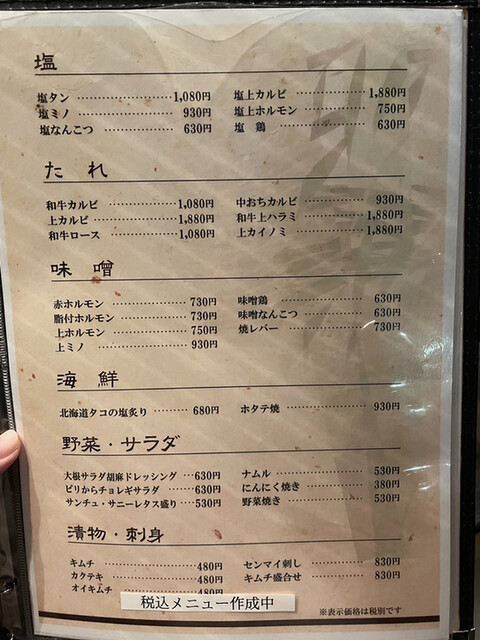 塩
塩タン 1,080円 塩上カルビ 1,880円
塩ミノ 930円 塩上ホルモン 750円
塩なんこつ 630円 塩 鶏 630円
たれ
和牛カルビ 1,080円 中おちカルビ 930円
上カルビ 1,880円 和牛上ハラミ 1,880円
和牛ロース 1,080円 上カイノミ 1,880円
味噌
赤ホルモン 730円 味噌鶏 630円
脂付ホルモン 730円 味噌なんこつ 630円
上ホルモン 750円 焼レバー 730円
上ミノ 930円
海鮮
北海道タコの塩炙り 680円 ホタテ焼 930円
野菜・サラダ
大根サラダ胡麻ドレッシング 630円 ナムル 530円
ピリからチョレギサラダ 630円 にんにく焼き 380円
サンチュ・サニーレタス盛り 530円 野菜焼き 530円
漬物・刺身
キムチ 480円 センマイ刺し 830円
カクテキ 480円 キムチ盛合せ 830円
オイキムチ 480円
税込メニュー作成中
※表示価格は税別です